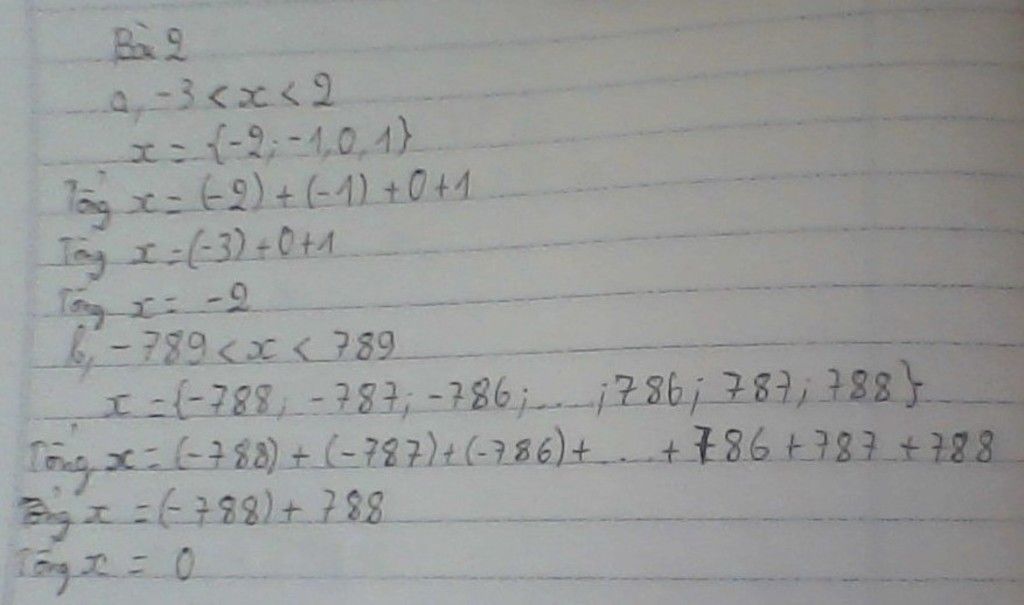 Bài 2
a, -3 < x < 2
x = {-2; -1, 0, 1}
Tổng x = (-2) + (-1) + 0 + 1
Tổng x = (-3) + 0 + 1
Tổng x = -2
b, -789 < x < 789
x = {-788; -787; -786; ....; 786; 787; 788}
Tổng x = (-788) + (-787) + (-786) + ... + 786 + 787 + 788
Tổng x = (-788) + 788
Tổng x = 0